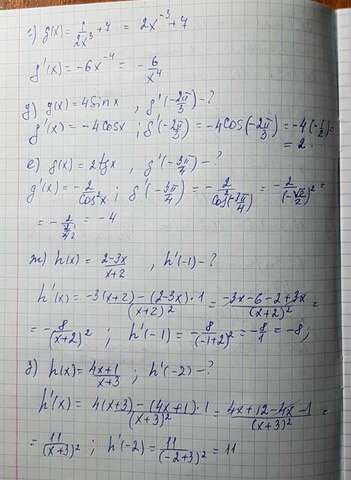 г) g(x) = 1/2x³ + 7 = 2x⁻³ + 7
g'(x) = -6x⁻⁴ = -6/x⁴
д) g(x) = 4sinx , g'(-2π/3) - ?
g'(x) = -4cosx ; g'(-2π/3) = -4cos(-2π/3) = -4(-1/2) =
= 2.
е) g(x) = 2tgx , g'(-3π/4) - ?
g'(x) = -2/cos²x ; g'(-3π/4) = -2/cos²(-3π/4) = -2/(-√2/2)² =
= -2/(2/4) = -4
ж) h(x) = 2-3x/x+2 , h'(-1) - ?
h'(x) = -3(x+2) - (2-3x)·1/(x+2)² = -3x-6-2+3x/(x+2)² =
= -8/(x+2)² ; h'(-1) = -8/(-1+2)² = -8/1 = -8;
з) h(x) = 4x+1/x+3 ; h'(-2) - ?
h'(x) = 4(x+3) - (4x+1)·1/(x+3)² = 4x+12-4x-1/(x+3)² =
= 11/(x+3)² ; h'(-2) = 11/(-2+3)² = 11